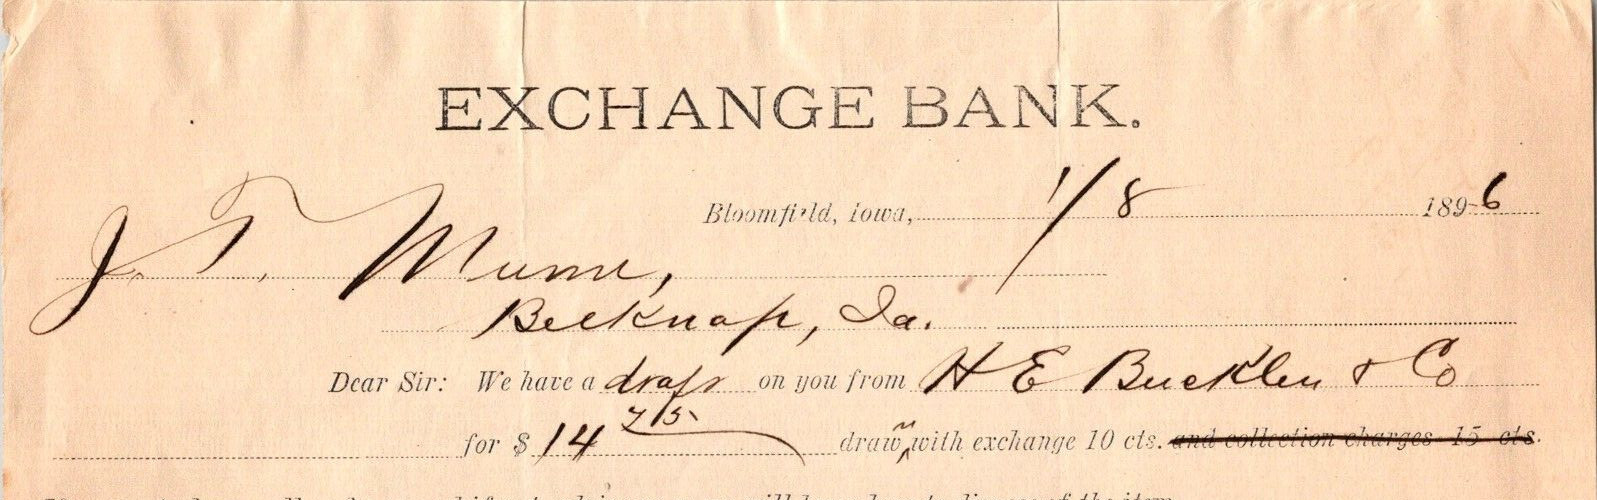 EXCHANGE BANK.
Bloomfield, Iowa, 1/8 1896
J. T. Munn,
Belknap, Ia.
Dear Sir: We have a draft on you from H E Bucklen & Co
for $ 14 75 drawn with exchange 10 cts. and collection charges 15 cts.
of the item